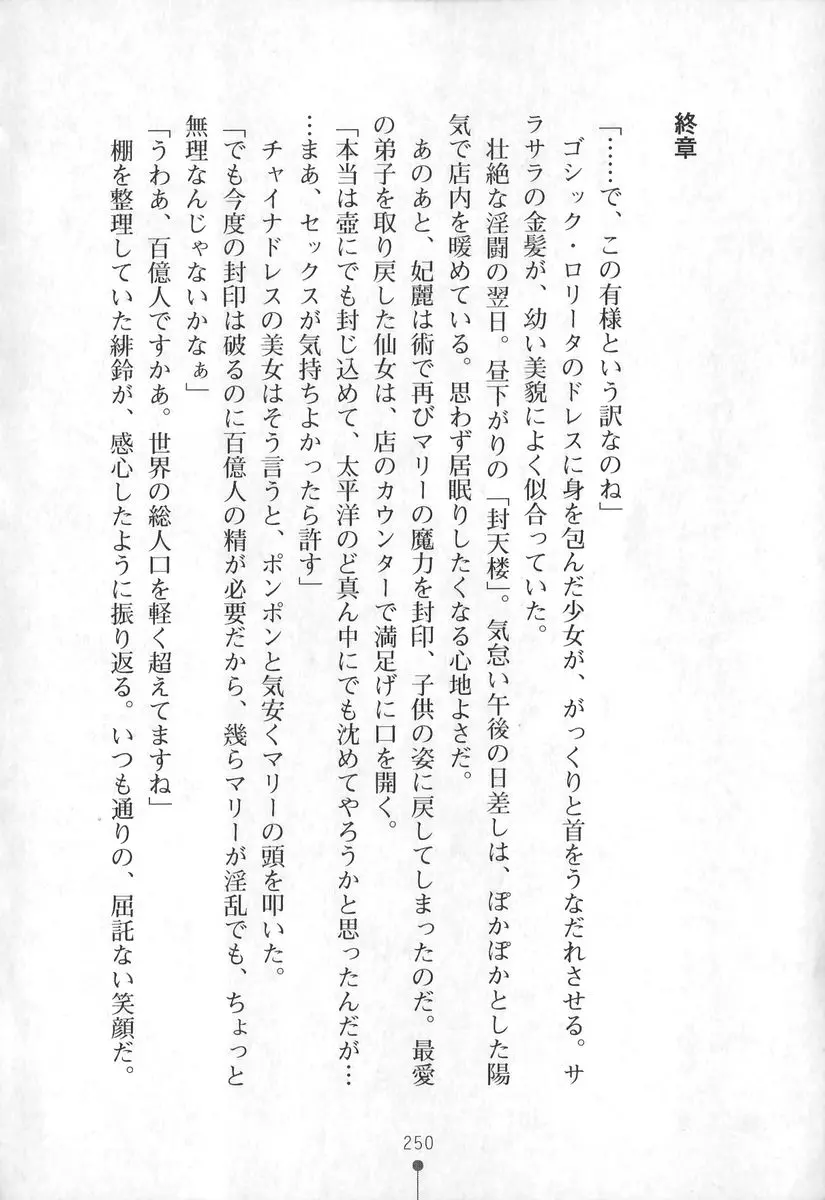 終章
「……で、この有様という訳なのね」
ゴシック・ロリータのドレスに身を包んだ少女が、がっくりと首をうなだれさせる。サ
ラサラの金髪が、幼い美貌によく似合っていた。
壮絶な淫闘の翌日。昼下がりの「封天楼」。気怠い午後の日差しは、ぽかぽかとした陽
気で店内を暖めている。思わず居眠りしたくなる心地よさだ。
あのあと、妃麗は術で再びマリーの魔力を封印、子供の姿に戻してしまったのだ。最愛
の弟子を取り戻した仙女は、店のカウンターで満足げに口を開く。
「本当は壺にでも封じ込めて、太平洋のど真ん中にでも沈めてやろうかと思ったんだが…
…まあ、セックスが気持ちよかったら許す」
チャイナドレスの美女はそう言うと、ポンポンと気安くマリーの頭を叩いた。
「でも今度の封印は破るのに百億人の精が必要だから、幾らマリーが淫乱でも、ちょっと
無理なんじゃないかなぁ」
「うわあ、百億人ですかあ。世界の総人口を軽く超えてますね」
棚を整理していた緋鈴が、感心したように振り返る。いつも通りの、屈託ない笑顔だ。
250